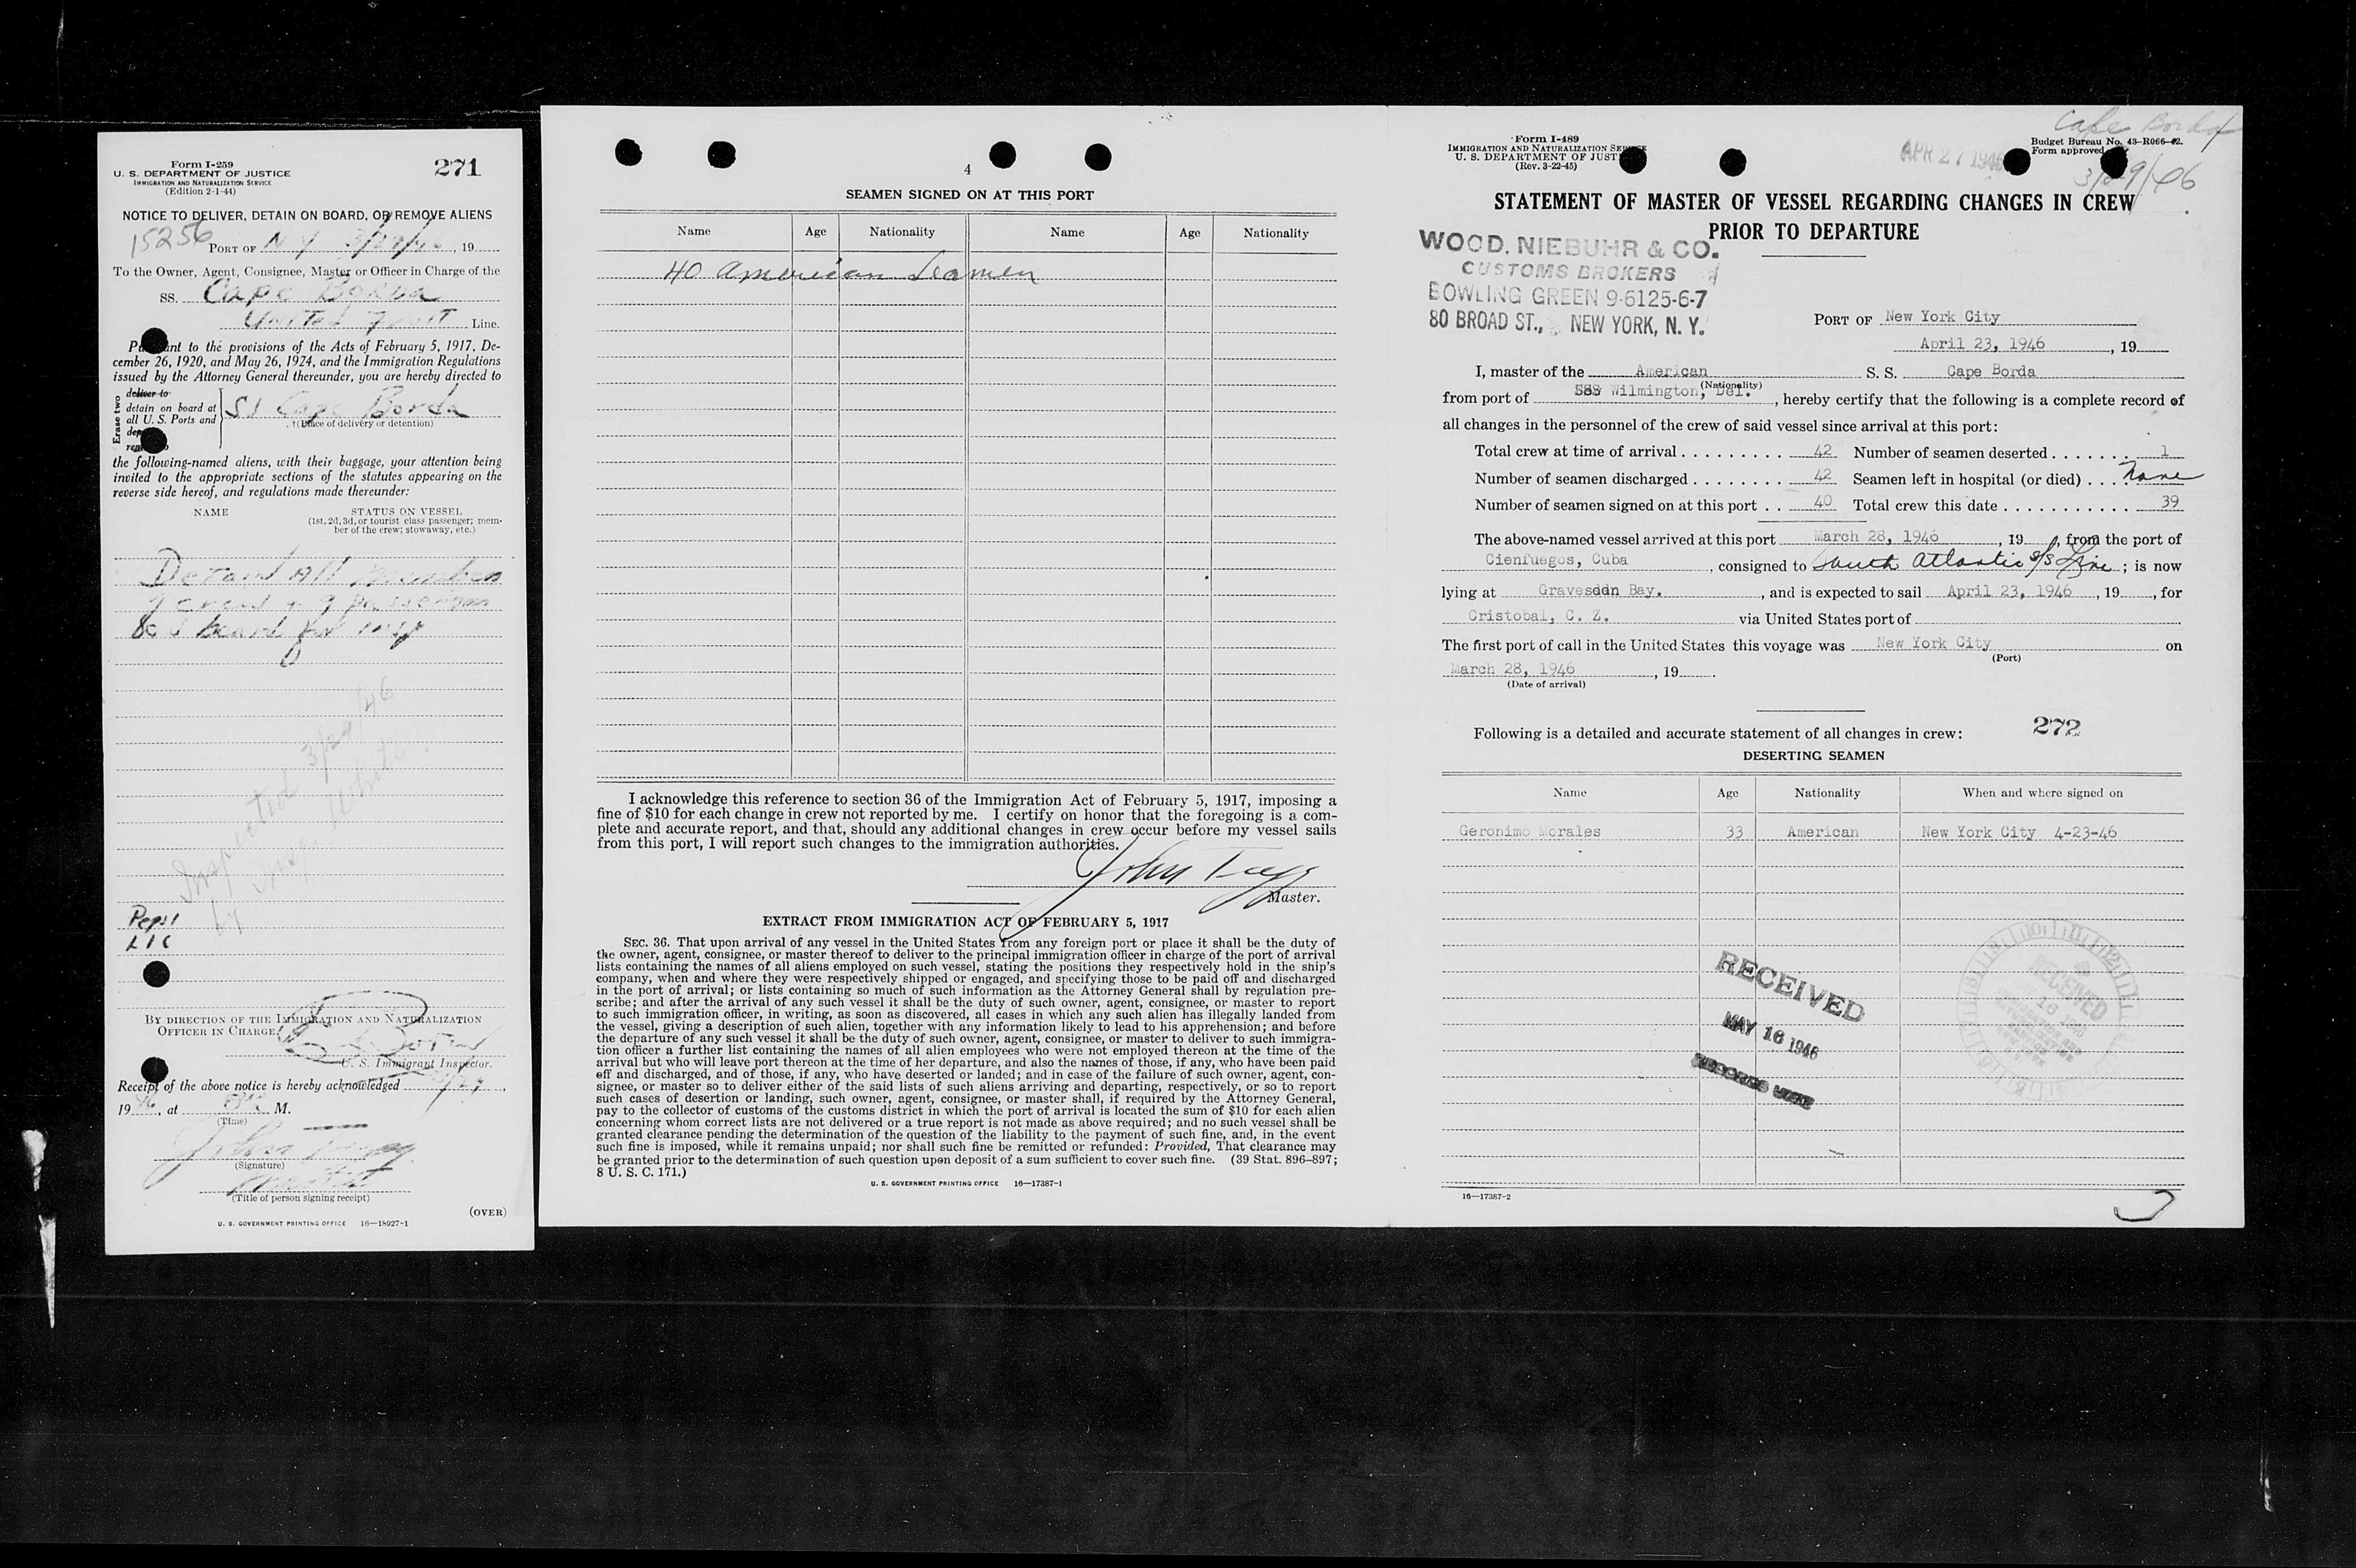 Form I-259
U. S. DEPARTMENT OF JUSTICE
IMMIGRATION AND NATURALIZATION SERVICE
(Edition 2-1-44)
271
NOTICE TO DELIVER, DETAIN ON BOARD, OR REMOVE ALIENS
15256
PORT OF N Y 3/29/46, 19
To the Owner, Agent, Consignee, Master or Officer in Charge of the
SS. Cape Borda
United Fruit Line.
nt to the provisions of the Acts of February 5, 1917, De-
cember 26, 1920, and May 26, 1924, and the Immigration Regulations
issued by the Attorney General thereunder, you are hereby directed to
Erase two
deliver to
detain on board at
all U. S. Ports and
SS Cape Borda
(Place of delivery or detention)
the following-named aliens, with their baggage, your attention being
invited to the appropriate sections of the statutes appearing on the
reverse side hereof, and regulations made thereunder:
NAME
STATUS ON VESSEL
(1st, 2d, 3d, or tourist class passenger; mem-
ber of the crew; stowaway, etc.)
Detain All members
of crew + 9 passengers
on board for insp
Inspected 3/29/46
by Insp. White.
BY DIRECTION OF THE IMMIGRATION AND NATURALIZATION
OFFICER IN CHARGE:
U. S. Immigrant Inspector.
Receipt of the above notice is hereby acknowledged
1946, at M.
(Time)
(Signature)
Master
(Title of person signing receipt)
(OVER)
U. S. GOVERNMENT PRINTING OFFICE 16—18927-1
4
SEAMEN SIGNED ON AT THIS PORT
Name Age Nationality Name Age Nationality
40 American Seamen
I acknowledge this reference to section 36 of the Immigration Act of February 5, 1917, imposing a
fine of $10 for each change in crew not reported by me. I certify on honor that the foregoing is a com-
plete and accurate report, and that, should any additional changes in crew occur before my vessel sails
from this port, I will report such changes to the immigration authorities.
John
Master.
EXTRACT FROM IMMIGRATION ACT OF FEBRUARY 5, 1917
SEC. 36. That upon arrival of any vessel in the United States from any foreign port or place it shall be the duty of
the owner, agent, consignee, or master thereof to deliver to the principal immigration officer in charge of the port of arrival
lists containing the names of all aliens employed on such vessel, stating the positions they respectively hold in the ship's
company, when and where they were respectively shipped or engaged, and specifying those to be paid off and discharged
in the port of arrival; or lists containing so much of such information as the Attorney General shall by regulation pre-
scribe; and after the arrival of any such vessel it shall be the duty of such owner, agent, consignee, or master to report
to such immigration officer, in writing, as soon as discovered, all cases in which any such alien has illegally landed from
the vessel, giving a description of such alien, together with any information likely to lead to his apprehension; and before
the departure of any such vessel it shall be the duty of such owner, agent, consignee, or master to deliver to such immigra-
tion officer a further list containing the names of all alien employees who were not employed thereon at the time of the
arrival but who will leave port thereon at the time of her departure, and also the names of those, if any, who have been paid
off and discharged, and of those, if any, who have deserted or landed; and in case of the failure of such owner, agent, con-
signee, or master so to deliver either of the said lists of such aliens arriving and departing, respectively, or so to report
such cases of desertion or landing, such owner, agent, consignee, or master shall, if required by the Attorney General,
pay to the collector of customs of the customs district in which the port of arrival is located the sum of $10 for each alien
concerning whom correct lists are not delivered or a true report is not made as above required; and no such vessel shall be
granted clearance pending the determination of the question of the liability to the payment of such fine, and, in the event
such fine is imposed, while it remains unpaid; nor shall such fine be remitted or refunded: Provided, That clearance may
be granted prior to the determination of such question upon deposit of a sum sufficient to cover such fine. (39 Stat. 896–897;
8 U. S. C. 171.)
U. S. GOVERNMENT PRINTING OFFICE 16—17387-1
Form I-489
IMMIGRATION AND NATURALIZATION SERVICE
U. S. DEPARTMENT OF JUST
(Rev. 3-22-45)
APR 27 1946
Cape Borda
Budget Bureau No. 43-R066-42.
Form approved
3/29/46
STATEMENT OF MASTER OF VESSEL REGARDING CHANGES IN CREW
PRIOR TO DEPARTURE
WOOD, NIEBUHR & CO.
CUSTOMS BROKERS
BOWLING GREEN 9-6125-6-7
80 BROAD ST., NEW YORK, N. Y.
PORT OF New York City
April 23, 1946, 19
I, master of the American S. S. Cape Borda
(Nationality)
from port of Wilmington, Del., hereby certify that the following is a complete record of
all changes in the personnel of the crew of said vessel since arrival at this port:
Total crew at time of arrival 42 Number of seamen deserted 1
Number of seamen discharged 42 Seamen left in hospital (or died) None
Number of seamen signed on at this port 40 Total crew this date 39
The above-named vessel arrived at this port March 28, 1946, 19, from the port of
Cienfuegos, Cuba, consigned to South Atlantic S/S Line; is now
lying at Gravesend Bay., and is expected to sail April 23, 1946, 19, for
Cristobal, C. Z. via United States port of
The first port of call in the United States this voyage was New York City on
(Port)
March 28, 1946, 19.
(Date of arrival)
Following is a detailed and accurate statement of all changes in crew:
272
DESERTING SEAMEN
Name Age Nationality When and where signed on
Geronimo Morales 33 American New York City 4-23-46
RECEIVED
MAY 16 1946
RECEIVED
16—17387-2